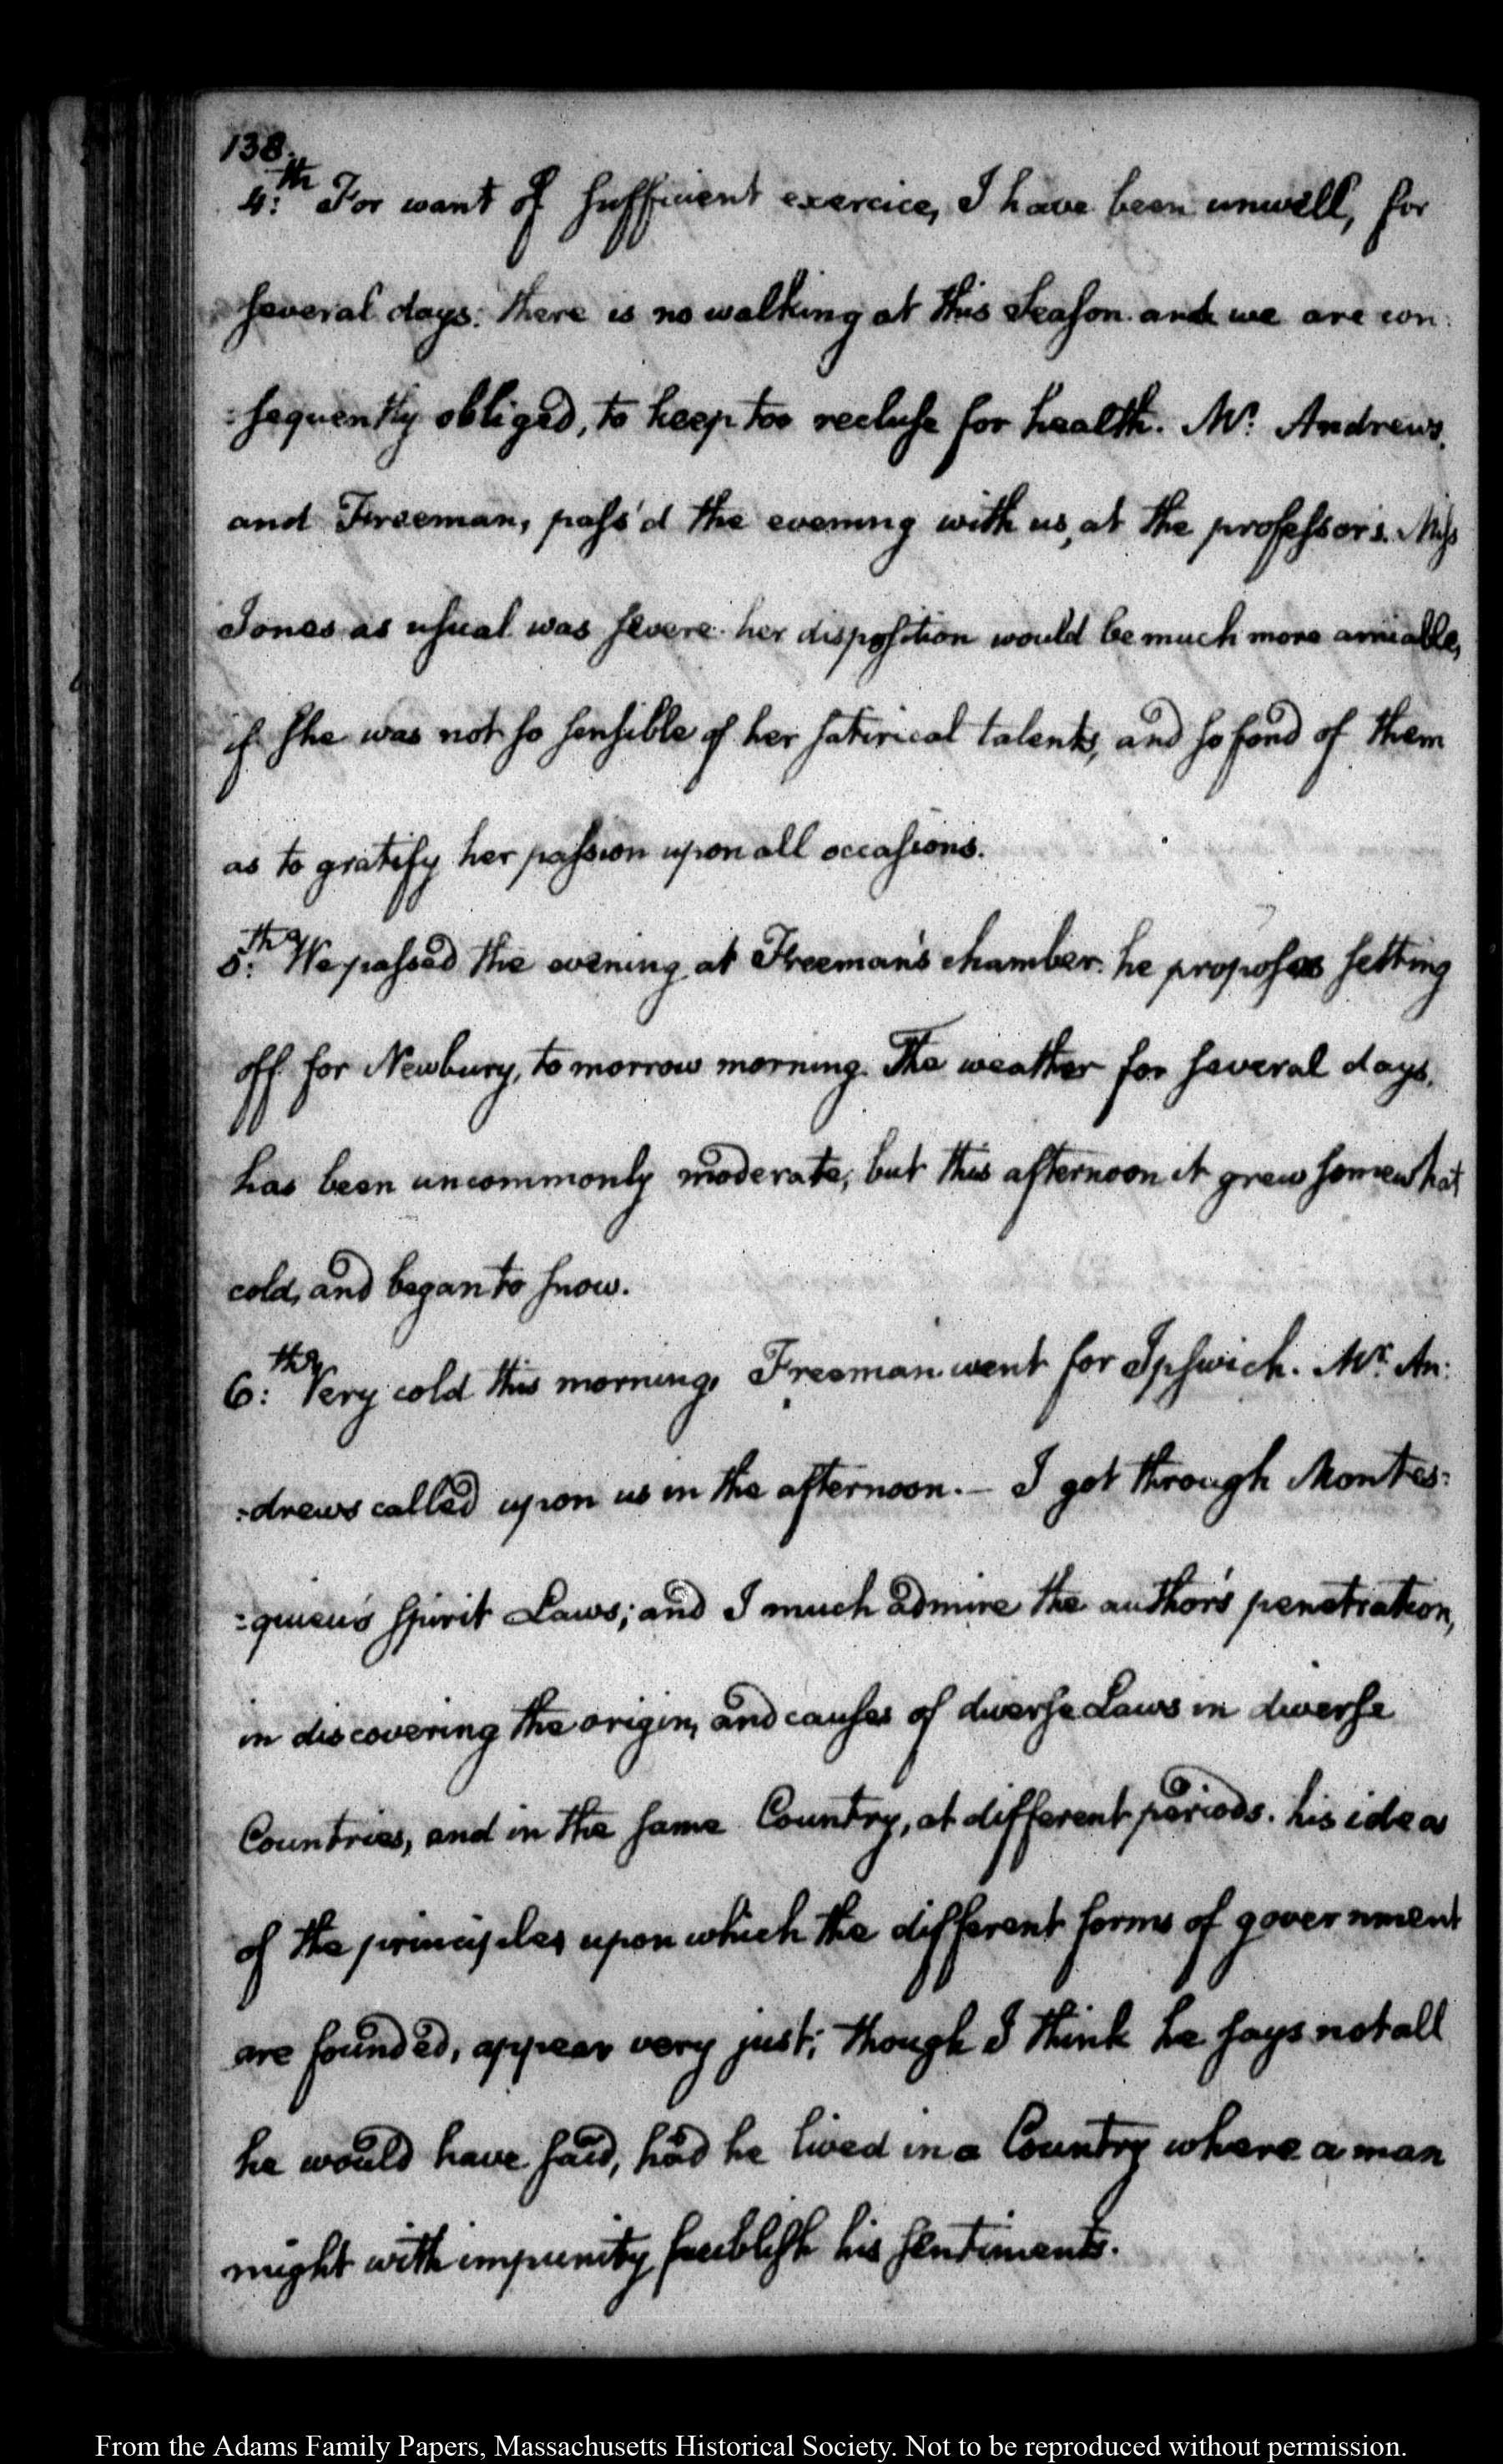 138.
4:th For want of sufficient exercice, I have been unwell, for
several days: there is no walking at this Season and we are con:
:sequently obliged, to keep too recluse for health. Mr: Andrews,
and Freeman, pass'd the evening with us, at the professor's. Miss
Jones as usual was severe: her disposition would be much more amiable,
if she was not so sensible of her satirical talents, and so fond of them
as to gratify her passion upon all occasions.
5:th We passed the evening at Freeman's chamber. he proposes setting
off for Newbury, to morrow morning. The weather for several days,
has been uncommonly moderate, but this afternoon it grew somewhat
cold, and began to snow.
6:th Very cold this morning, Freeman went for Ipswich. Mr. An:
:drews called upon us in the afternoon. — I got through Montes:
:quieu's spirit Laws; and I much admire the author's penetration,
in discovering the origin, and causes of diverse Laws in diverse
Countries, and in the same Country, at different periods. his ideas
of the principles upon which the different forms of government
are founded, appear very just; though I think he says not all
he would have said, had he lived in a Country where a man
might with impunity publish his sentiments.
From the Adams Family Papers, Massachusetts Historical Society. Not to be reproduced without permission.